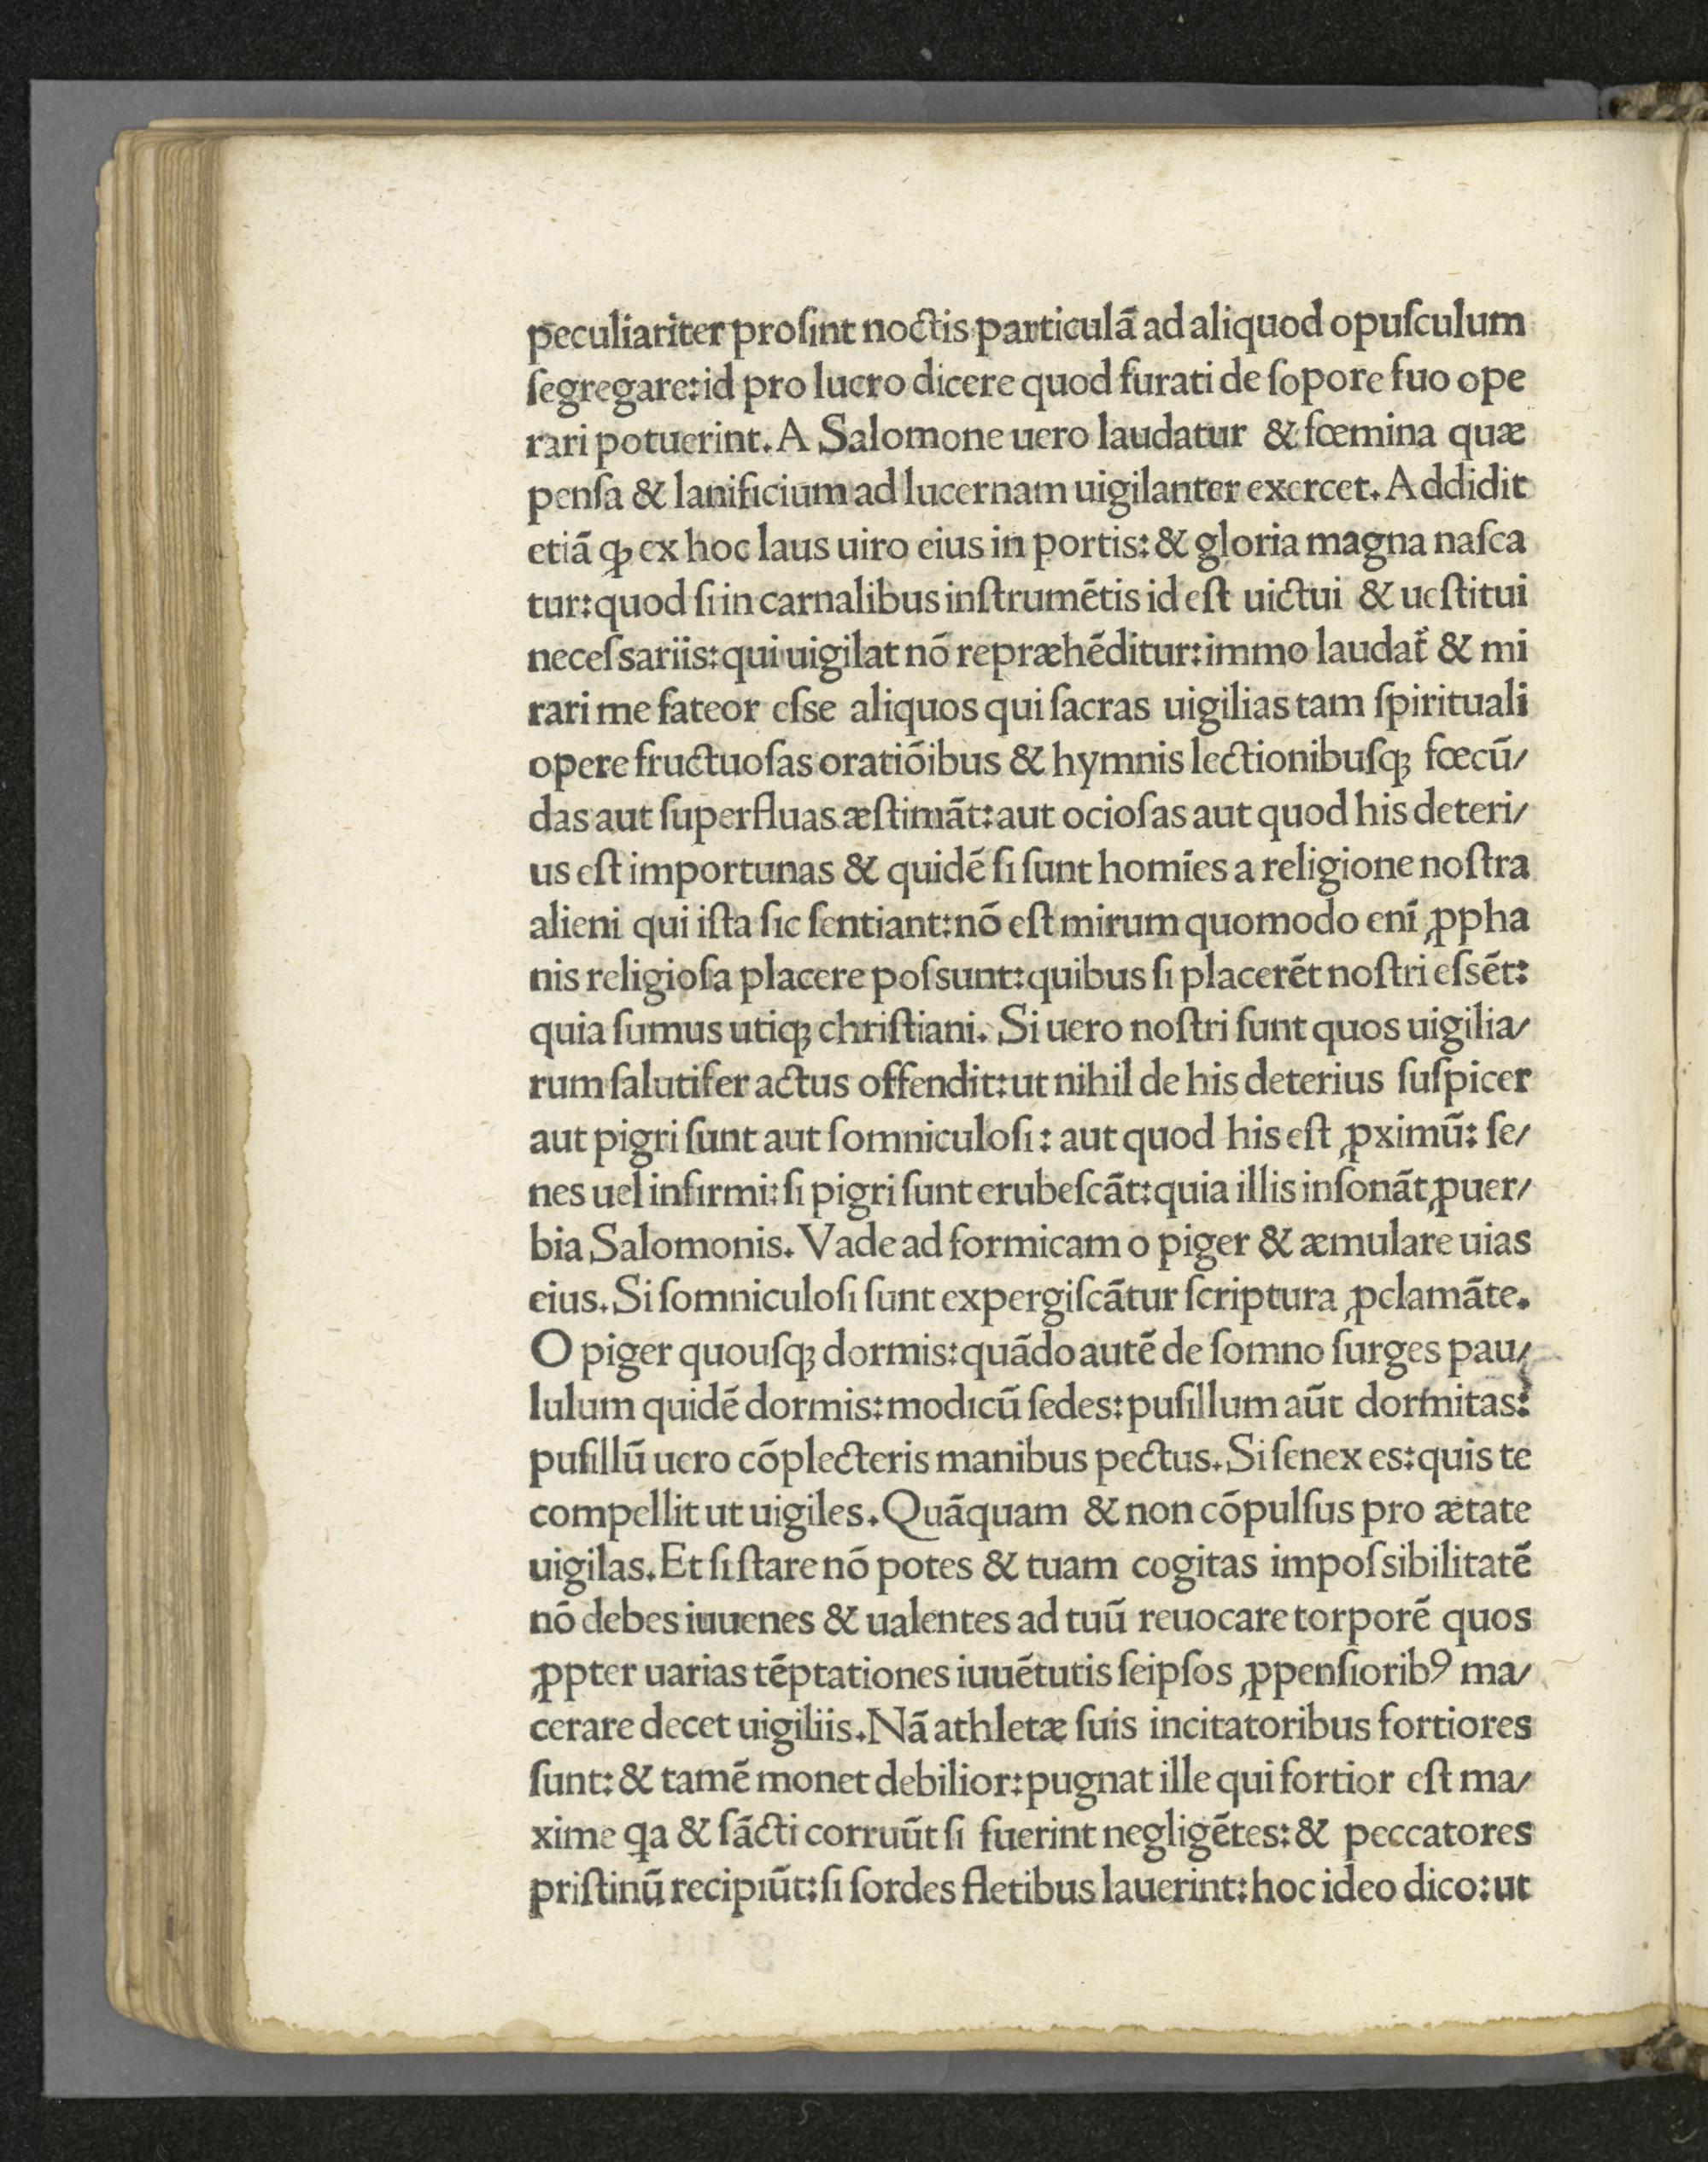 peculiariter proſint noctis particulā ad aliquod opuſculum
ſegregare: id pro lucro dicere quod furati de ſopore ſuo ope
rari potuerint. A Salomone uero laudatur & fœmina quæ
penſa & lanificium ad lucernam uigilanter exercet. Addidit
etiā ꝙ ex hoc laus uiro eius in portis: & gloria magna naſca
tur: quod ſi in carnalibus inſtrumētis id eſt uictui & ueſtitui
neceſsariis: qui uigilat nō repræhēditur: immo laudat̉ & mi
rari me fateor eſse aliquos qui ſacras uigilias tam ſpirituali
opere fructuoſas oratiōibus & hymnis lectionibuſꝗ fœcū/
das aut ſuperfluas æſtimāt: aut ocioſas aut quod his deteri/
us eſt importunas & quidē ſi ſunt homīes a religione noſtra
alieni qui iſta ſic ſentiant: nō eſt mirum quomodo enī ꝓpha
nis religioſa placere poſsunt: quibus ſi placerēt noſtri eſsēt:
quia ſumus utiꝗ chriſtiani. Si uero noſtri ſunt quos uigilia/
rum ſalutifer actus offendit: ut nihil de his deterius ſuſpicer
aut pigri ſunt aut ſomniculoſi: aut quod his eſt ꝓximū: ſe/
nes uel infirmi: ſi pigri ſunt erubeſcāt: quia illis inſonāt ꝓuer/
bia Salomonis. Vade ad formicam o piger & æmulare uias
eius. Si ſomniculoſi ſunt expergiſcātur ſcriptura ꝓclamāte.
O piger quouſꝗ dormis: quādo autē de ſomno ſurges pau/
lulum quidē dormis: modicū ſedes: puſillum aūt dormitas:
puſillū uero cōplecteris manibus pectus. Si ſenex es: quis te
compellit ut uigiles. Quāquam & non cōpulſus pro ætate
uigilas. Et ſi ſtare nō potes & tuam cogitas impoſsibilitatē
nō debes iuuenes & ualentes ad tuū reuocare torporē quos
ꝓpter uarias tēptationes iuuētutis ſeipſos ꝓpenſiorib9 ma/
cerare decet uigiliis. Nā athletæ ſuis incitatoribus fortiores
ſunt: & tamē monet debilior: pugnat ille qui fortior eſt ma/
xime ꝗa & ſācti corruūt ſi fuerint negligētes: & peccatores
priſtinū recipiūt: ſi ſordes fletibus lauerint: hoc ideo dico: ut